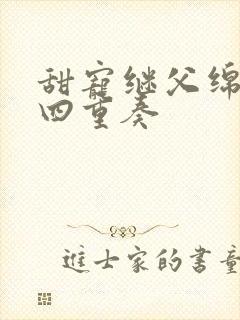 甜寵继父绵
四重奏
進士家的書童